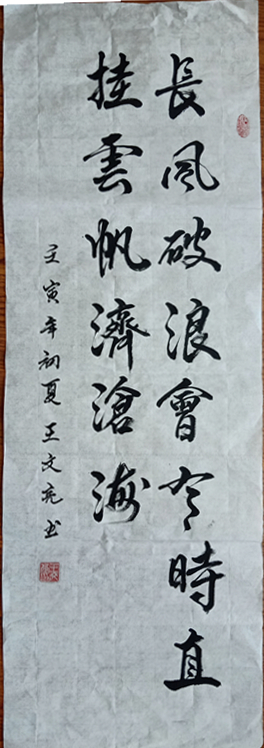 長風破浪會有時直
挂雲帆濟滄海
壬寅年初夏王文亮书